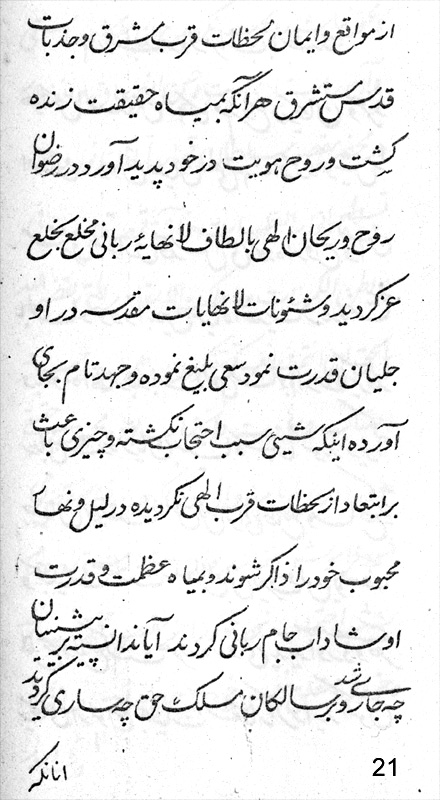 از مواقع و ایمان لحظات قرب مشرق و جذبات
قدس مستشرق هر آنگه بمیاه حقیقت زنده
گشت و روح هویت در خود پدید آورد در رضوان
روح و ریحان الهی بالطاف لانهایهٔ ربانی مخلع بخلع
عز گردید و شئونات لانهایات مقدسه در او
جلیان قدرت نمود سعی بلیغ نموده و جهد تام بجای
آورده اینکه شیئی سبب احتجاب نگشته و چیزی باعث
بر ابتعاد از لحظات قرب الهی نگردیده در لیل و نهار
محبوب خود را ذاکر شوند و بمیاه عظمت و قدرت
او شاداب جام ربانی گردند آیا ندانسته بر پیشینیان
چه جاری شد و بر سالکان مسلک حق چه ساری گردید
انانکه
21